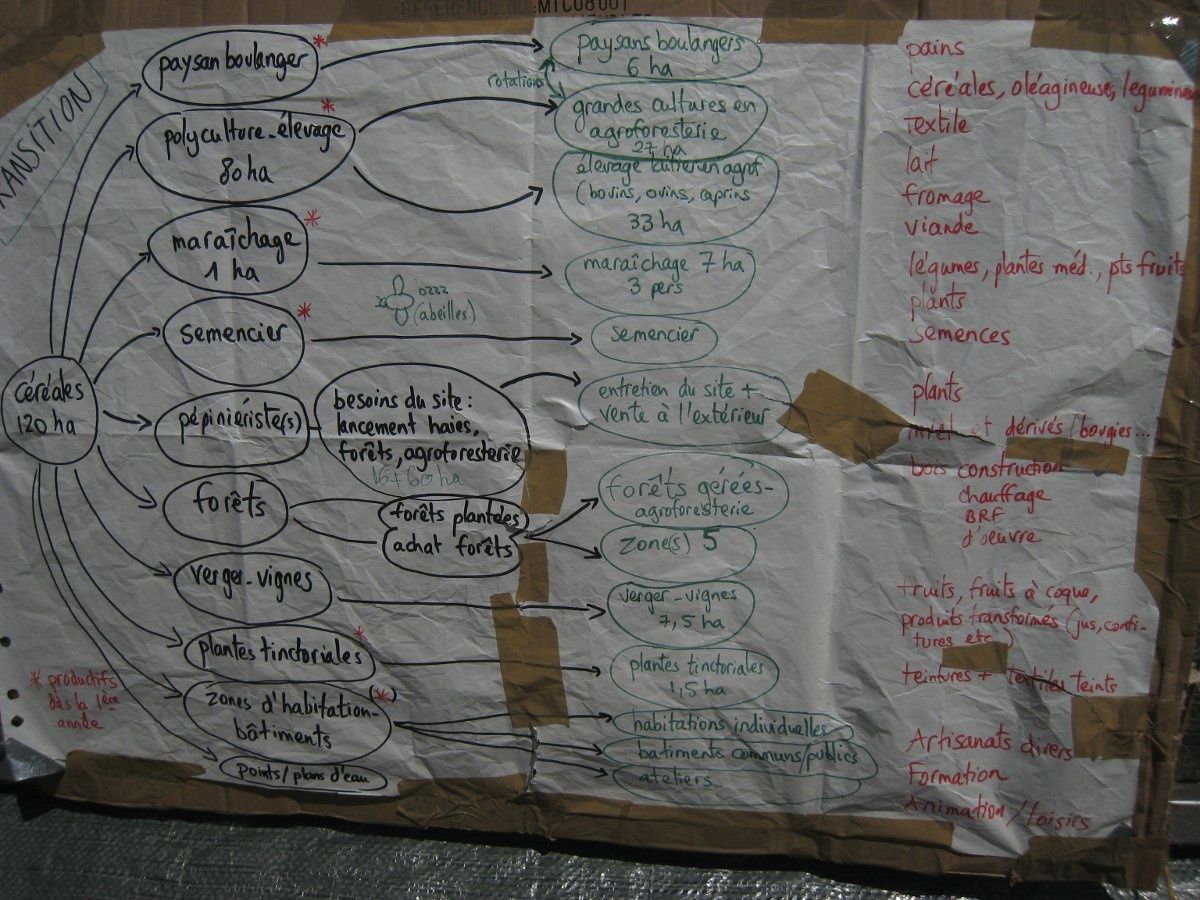 MTC08001
TRANSITION
céréales
120 ha
paysan boulanger *
polyculture-élevage *
80 ha
maraîchage *
1 ha
semencier *
pépiniériste(s)
besoins du site :
lancement haies,
forêts, agroforesterie
forêts
forêts plantées
achat forêts
verger-vignes
plantes tinctoriales *
zones d'habitation- (*)
bâtiments
points/plans d'eau
* productifs
dès la 1ère
année
rotations
bzzz
(abeilles)
paysans boulangers
6 ha
grandes cultures en
agroforesterie
27 ha
élevage laitier en agrof
(bovins, ovins, caprins
33 ha
maraîchage 7 ha
3 pers
semencier
entretien du site +
vente à l'extérieur
forêts gérées-
agroforesterie
zone(s) 5
verger-vignes
7,5 ha
plantes tinctoriales
1,5 ha
habitations individuelles
batiments communs/publics
ateliers
pains
céréales, oléagineuse, légumineuse
textile
lait
fromage
viande
légumes, plantes méd., pts fruits
plants
semences
plants
miel et dérivés (bougies...
bois construction
chauffage
BRF
d'oeuvre
fruits, fruits à coque,
produits transformés (jus, confi-
tures etc)
teintures + textiles teints
Artisanats divers
Formation
Animation/loisirs